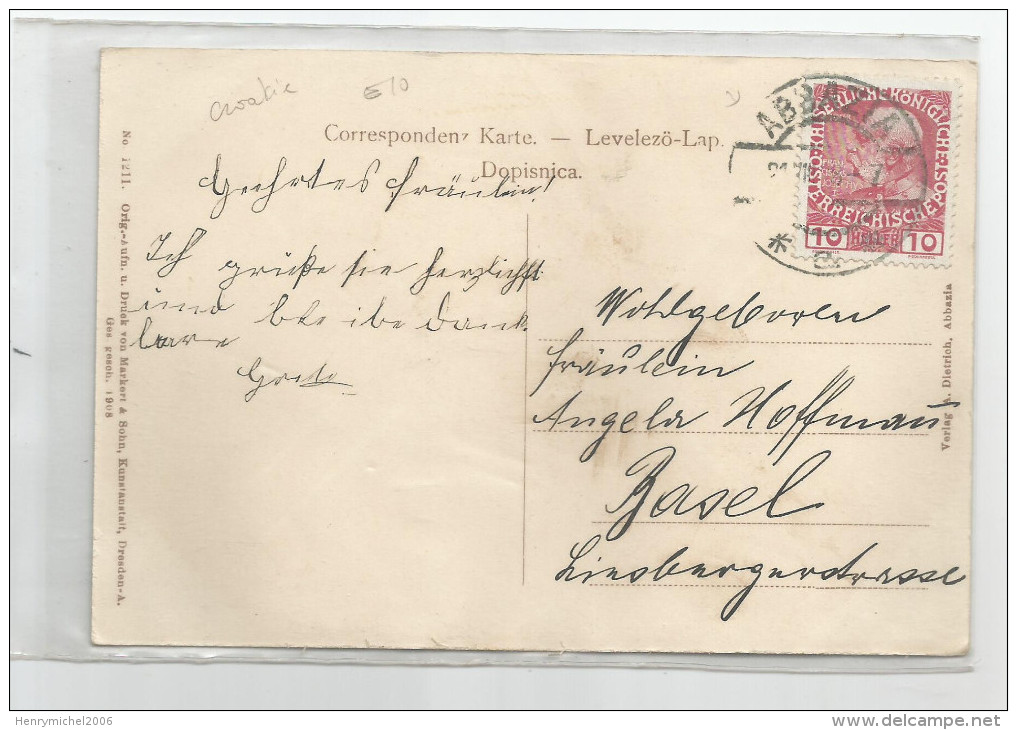 Croatie
€10
Correspondenz Karte. — Levelezö-Lap.
Dopisnica.
ABBAZIA
KAISERLICHE KÖNIGLICHE
ÖSTERREICHISCHE POST
10 HELLER 10
Geehrtes Fräulein!
Ich grüße sie herzlichst
und bleibe dank
bare
Wohlgeboren
Fräulein
Angela Hoffmann
Basel
No 1211. Orig.-Aufn. u. Druck von Markert & Sohn, Kunstanstalt, Dresden-A.
Ges gesch. 1908
Verlag A. Dietrich, Abbazia
Henrymichel2006
www.delcampe.net